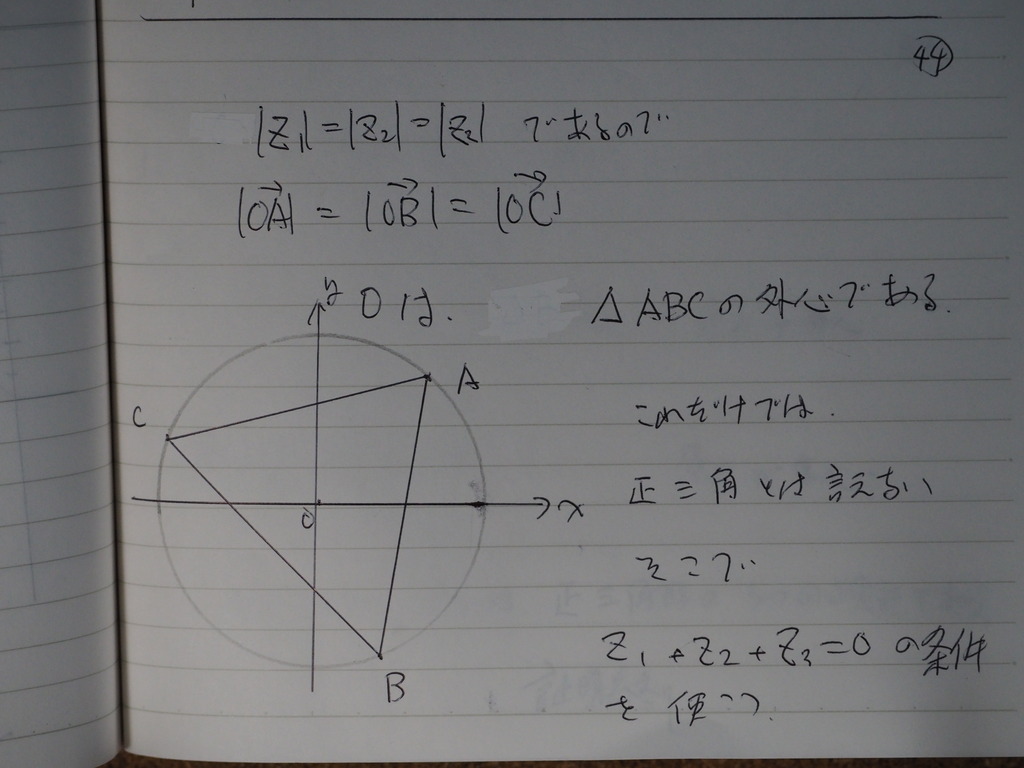 ㊹
|Z₁| = |Z₂| = |Z₃| であるので
|OA→| = |OB→| = |OC→|
y
Oは、 △ABCの外心である.
A
C
これだけでは.
正三角とは言えない
O
x
そこで
Z₁ + Z₂ + Z₃ = 0 の条件
を使う.
B